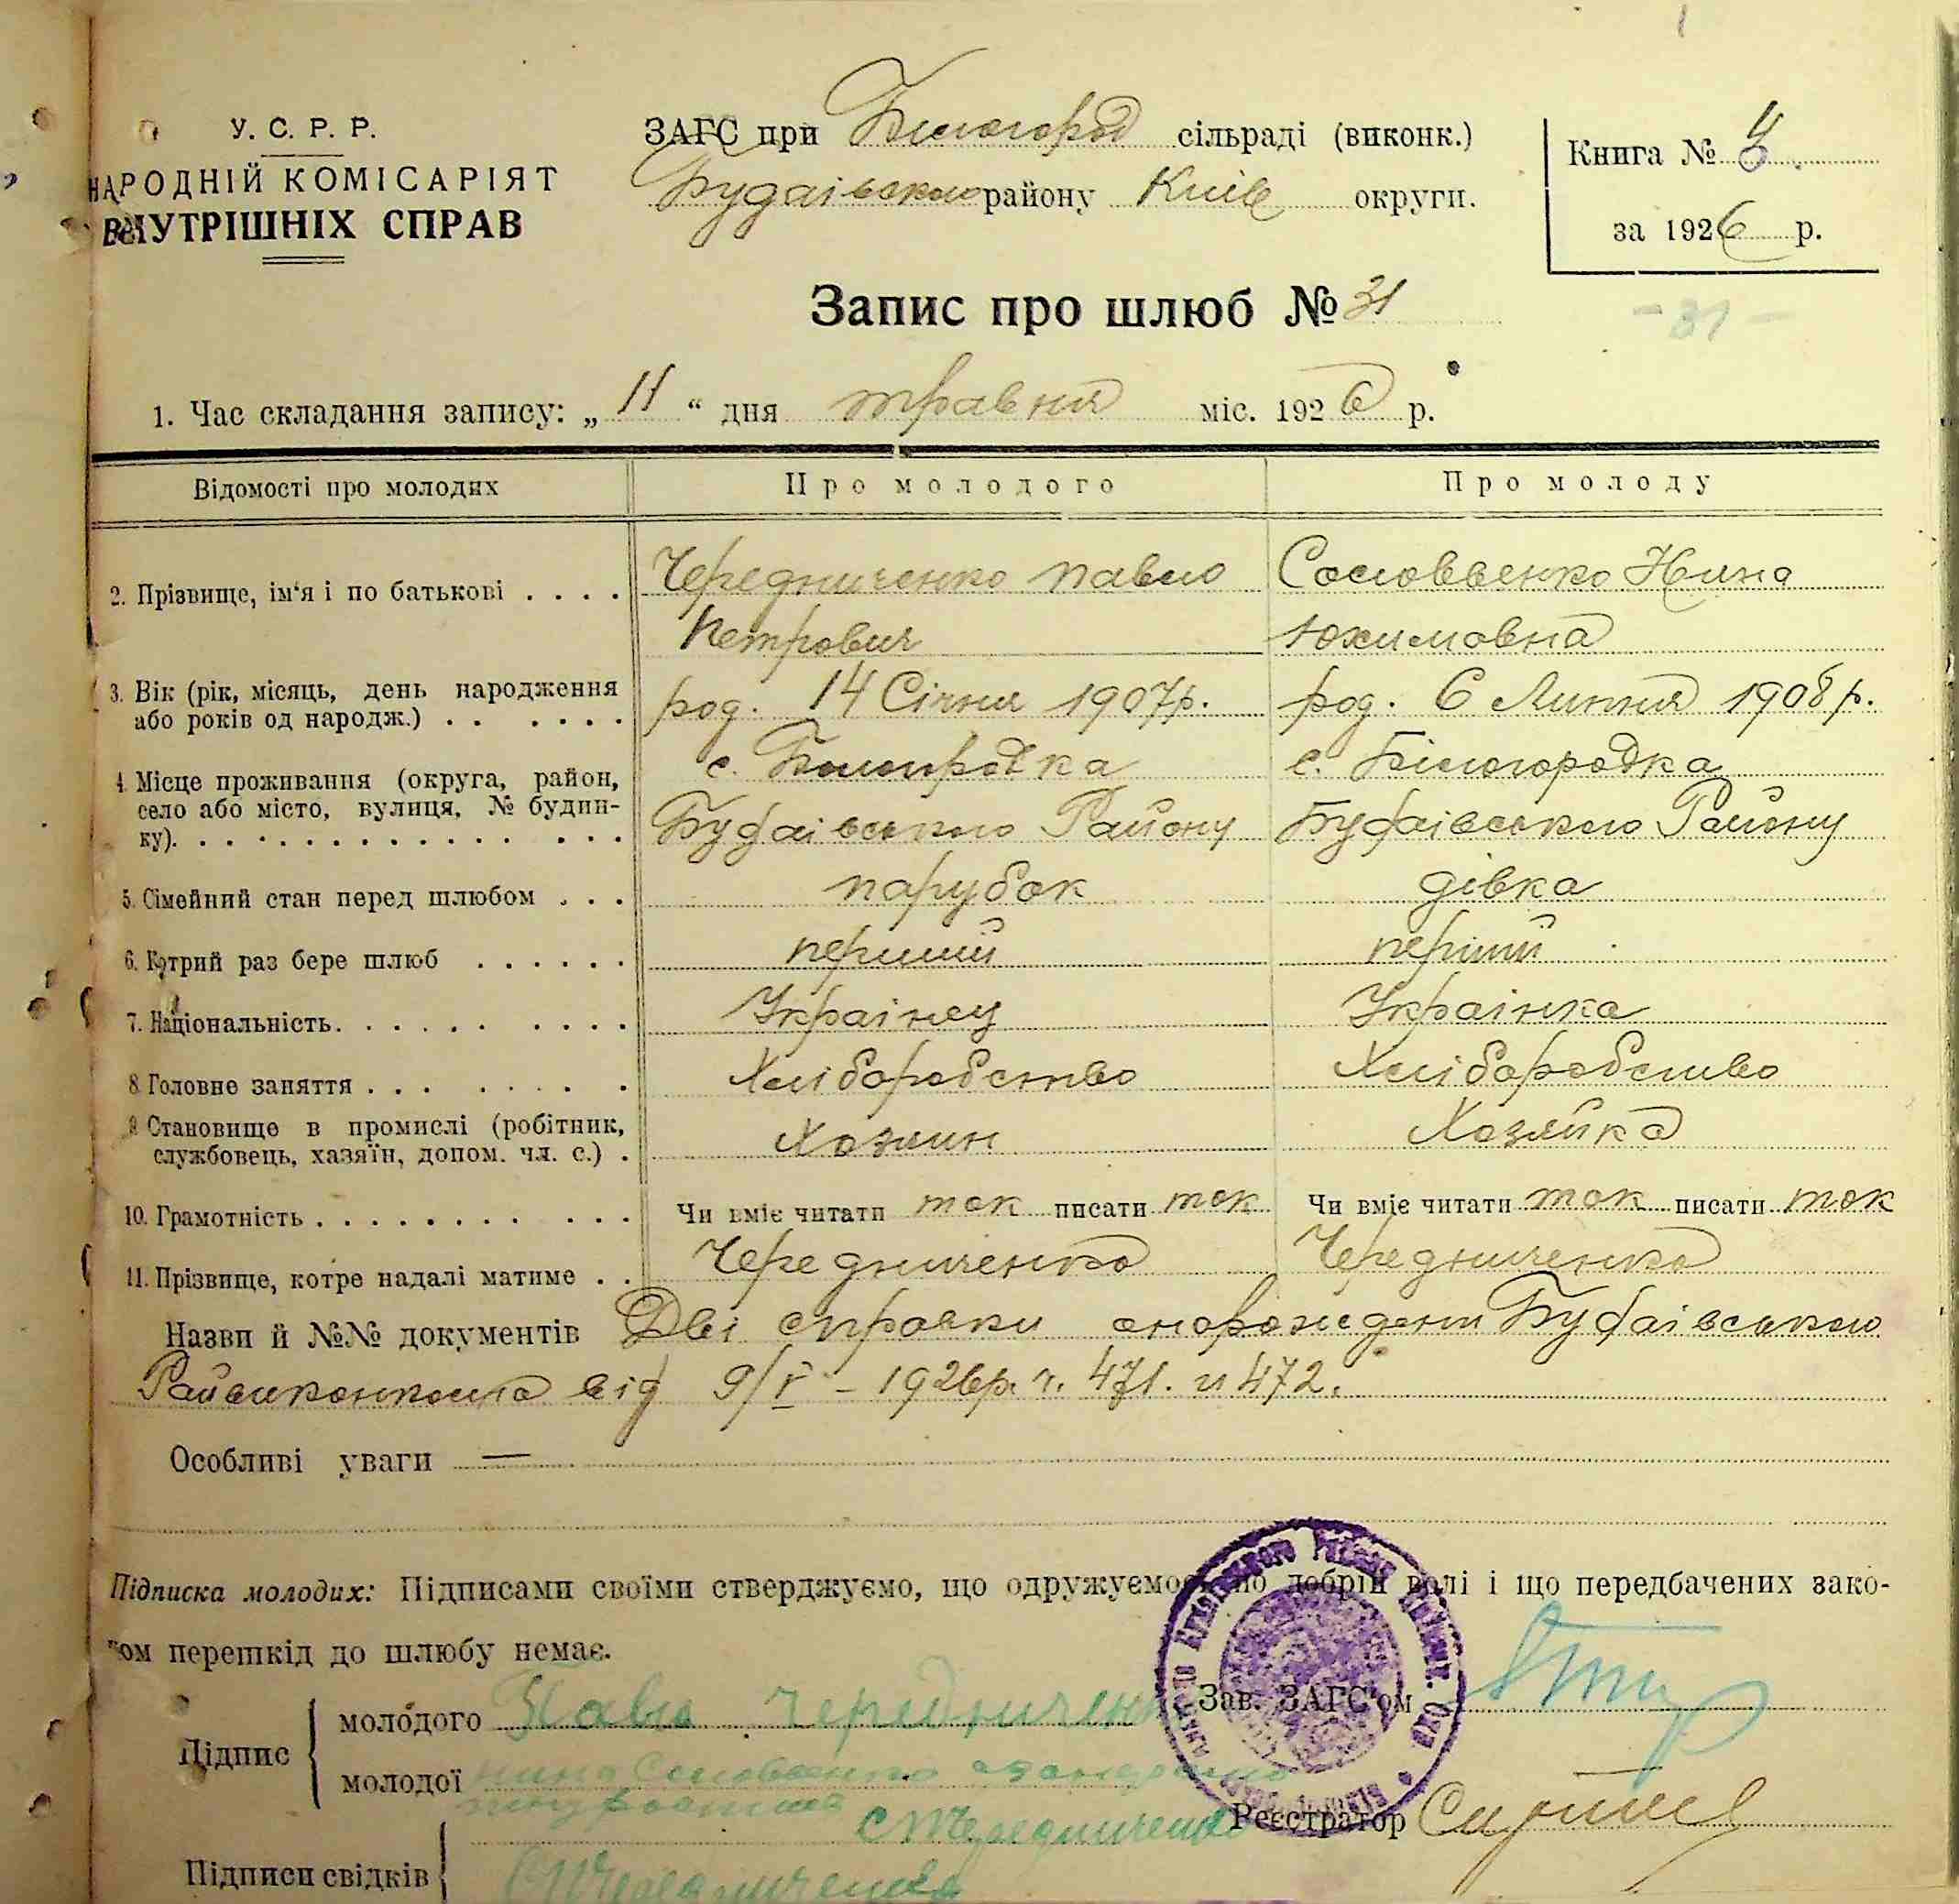 У. С. Р. Р.
НАРОДНІЙ КОМІСАРІЯТ
ВНУТРІШНІХ СПРАВ
ЗАГС при Білогород сільраді (виконк.)
Будаівського району Київ округи.
Книга №
за 1926 р.
Запис про шлюб № 31
- 31 -
1. Час складання запису: „ 11 “ дня травня міс. 1926 р.
Відомості про молодих Про молодого Про молоду
2. Прізвище, ім'я і по батькові . . . . Чередниченко Павло Соловвенко Нина
Петрович Юхимовна
3. Вік (рік, місяць, день народження або років од народж.) . . . . . . род. 14 Січня 1907р. род. 6 Липня 1908р.
4. Місце проживання (округа, район, село або місто, вулиця, № будинку). с. Білогородка с. Білогородка
Будаівського Району Будаівського Району
5. Сімейний стан перед шлюбом . . . парубок дівка
6. Котрий раз бере шлюб . . . . . . перший перший
7. Національність. . . . . . . . . . Українец Українка
8. Головне заняття . . . . . . . . Хліборобство Хліборобство
9. Становище в промислі (робітник, службовець, хазяїн, допом. чл. с.) . Хозяин Хозяйка
10. Грамотність . . . . . . . . . . . Чи вміє читати так писати так Чи вміє читати так писати так
11. Прізвище, котре надалі матиме . . Чередниченко Черeдниченко
Назви й №№ документів Дві справки Будаівського
Райвиконкома від 9/V - 1926р. ч. 471. и 472.
Особливі уваги —
Підписка молодих: Підписами своїми стверджуємо, що одружуємось по добрій волі і що передбачених зако-
ном перешкід до шлюбу немає.
Підпис
молодого Павло Чередничен
молодої нина Соловвенко
Зав. ЗАГС'ом
С Чередниченко
Реєстратор
Підписи свідків Чередниченко